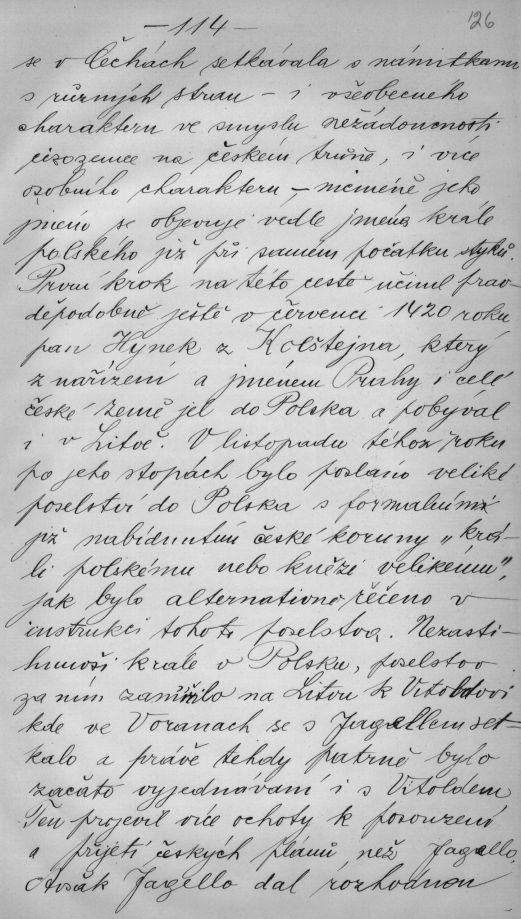 — 114 —
126
se v Čechách setkávala s námitkami
s různých stran – i všeobecného
charakteru ve smyslu nežádoucnosti
cizozemce na českém trůně, i více
osobního charakteru, – nicméně jeho
jméno se objevuje vedle jména krále
polského již při samém počátku styků.
První krok na této cestě učinil prav-
děpodobně ještě v červenci 1420 roku
pan Hynek z Kolštejna, který
z nařízení a jménem Prahy i celé
české země jel do Polska a pobýval
i v Litvě. V listopadu téhož roku
po jeho stopách bylo posláno veliké
poselství do Polska s formalními
již nabídnutím české koruny „krá-
li polskému nebo knězi velikému",
jak bylo alternativně řěčeno v
instrukci tohoto poselstva. Nezasti-
hnuvši krále v Polsku, poselstvo
za ním zamířilo na Litvu k Vitoldovi
kde ve Voranach se s Jagellem set-
kalo a právě tehdy patrně bylo
začato vyjednávaní i s Vitoldem
Ten projevil více ochoty k posouzení
a přijetí českých plánů, než Jagello.
Avšak Jagello dal